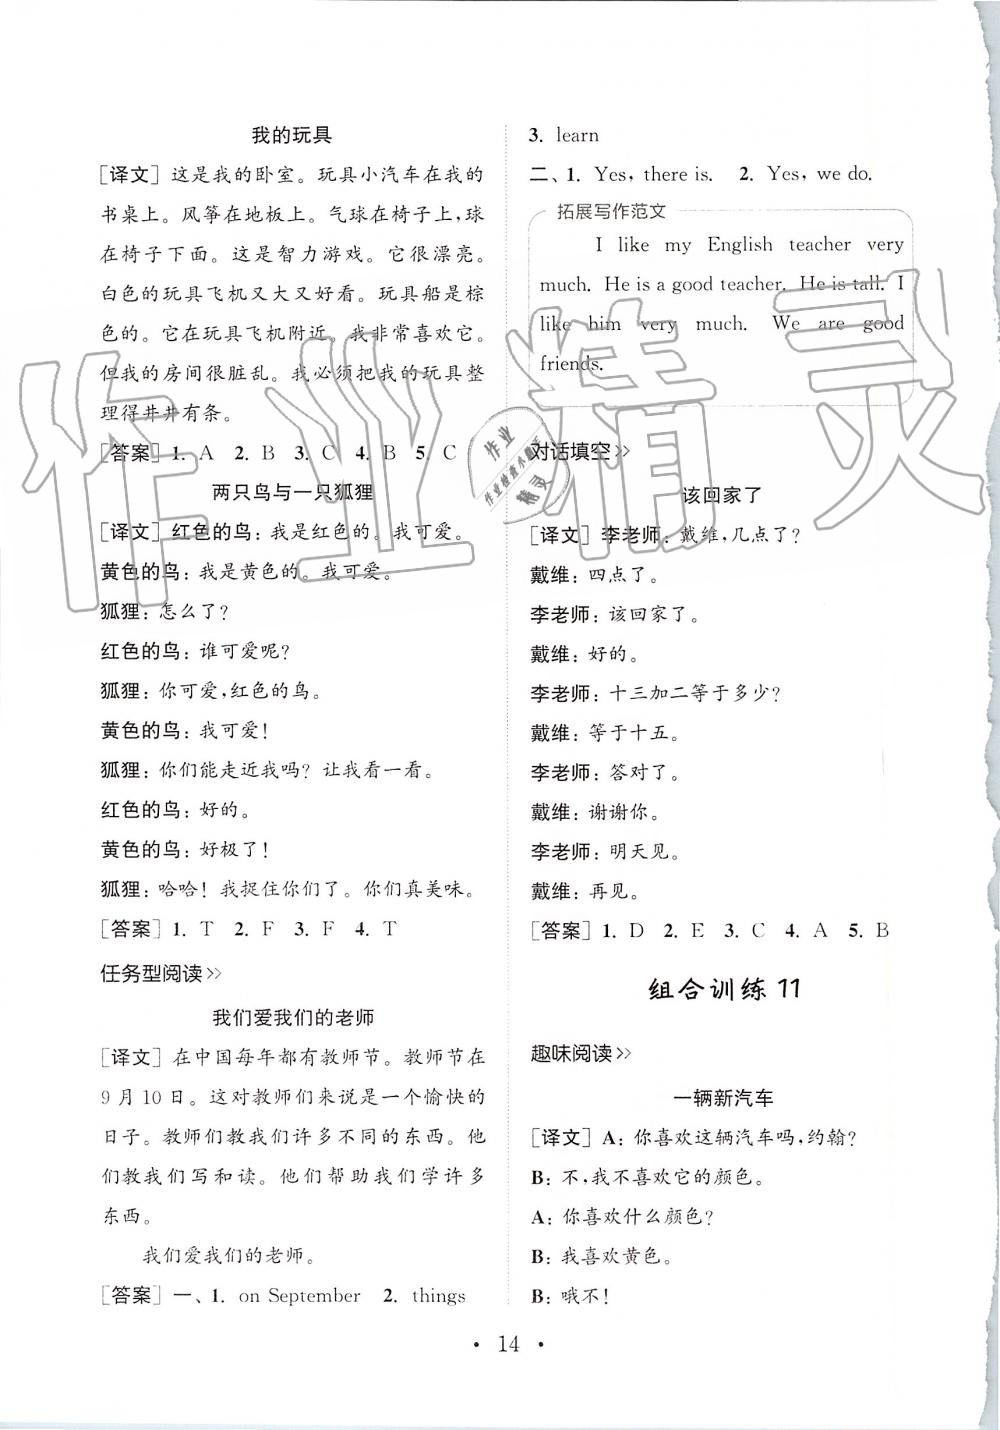 我的玩具
[译文] 这是我的卧室。玩具小汽车在我的
书桌上。风筝在地板上。气球在椅子上,球
在椅子下面。这是智力游戏。它很漂亮。
白色的玩具飞机又大又好看。玩具船是棕
色的。它在玩具飞机附近。我非常喜欢它。
但我的房间很脏乱。我必须把我的玩具整
理得井井有条。
[答案] 1. A 2. B 3. C 4. B 5. C
两只鸟与一只狐狸
[译文] 红色的鸟: 我是红色的。我可爱。
黄色的鸟: 我是黄色的。我可爱。
狐狸: 怎么了?
红色的鸟: 谁可爱呢?
狐狸: 你可爱,红色的鸟。
黄色的鸟: 我可爱!
狐狸: 你们能走近我吗? 让我看一看。
红色的鸟: 好的。
黄色的鸟: 好极了!
狐狸: 哈哈! 我捉住你们了。你们真美味。
[答案] 1. T 2. F 3. F 4. T
任务型阅读>>
我们爱我们的老师
[译文] 在中国每年都有教师节。教师节在
9 月 10 日。这对教师们来说是一个愉快的
日子。教师们教我们许多不同的东西。他
们教我们写和读。他们帮助我们学许多
东西。
我们爱我们的老师。
[答案] 一、1. on September 2. things
3. learn
二、1. Yes, there is. 2. Yes, we do.
拓展写作范文
I like my English teacher very
much. He is a good teacher. He is tall. I
like him very much. We are good
friends.
对话填空>>
该回家了
[译文] 李老师: 戴维,几点了?
戴维: 四点了。
李老师: 该回家了。
戴维: 好的。
李老师: 十三加二等于多少?
戴维: 等于十五。
李老师: 答对了。
戴维: 谢谢你。
李老师: 明天见。
戴维: 再见。
[答案] 1. D 2. E 3. C 4. A 5. B
组合训练 11
趣味阅读>>
一辆新汽车
[译文] A: 你喜欢这辆汽车吗,约翰?
B: 不,我不喜欢它的颜色。
A: 你喜欢什么颜色?
B: 我喜欢黄色。
B: 哦不!
· 14 ·
作业精灵
作业
精灵